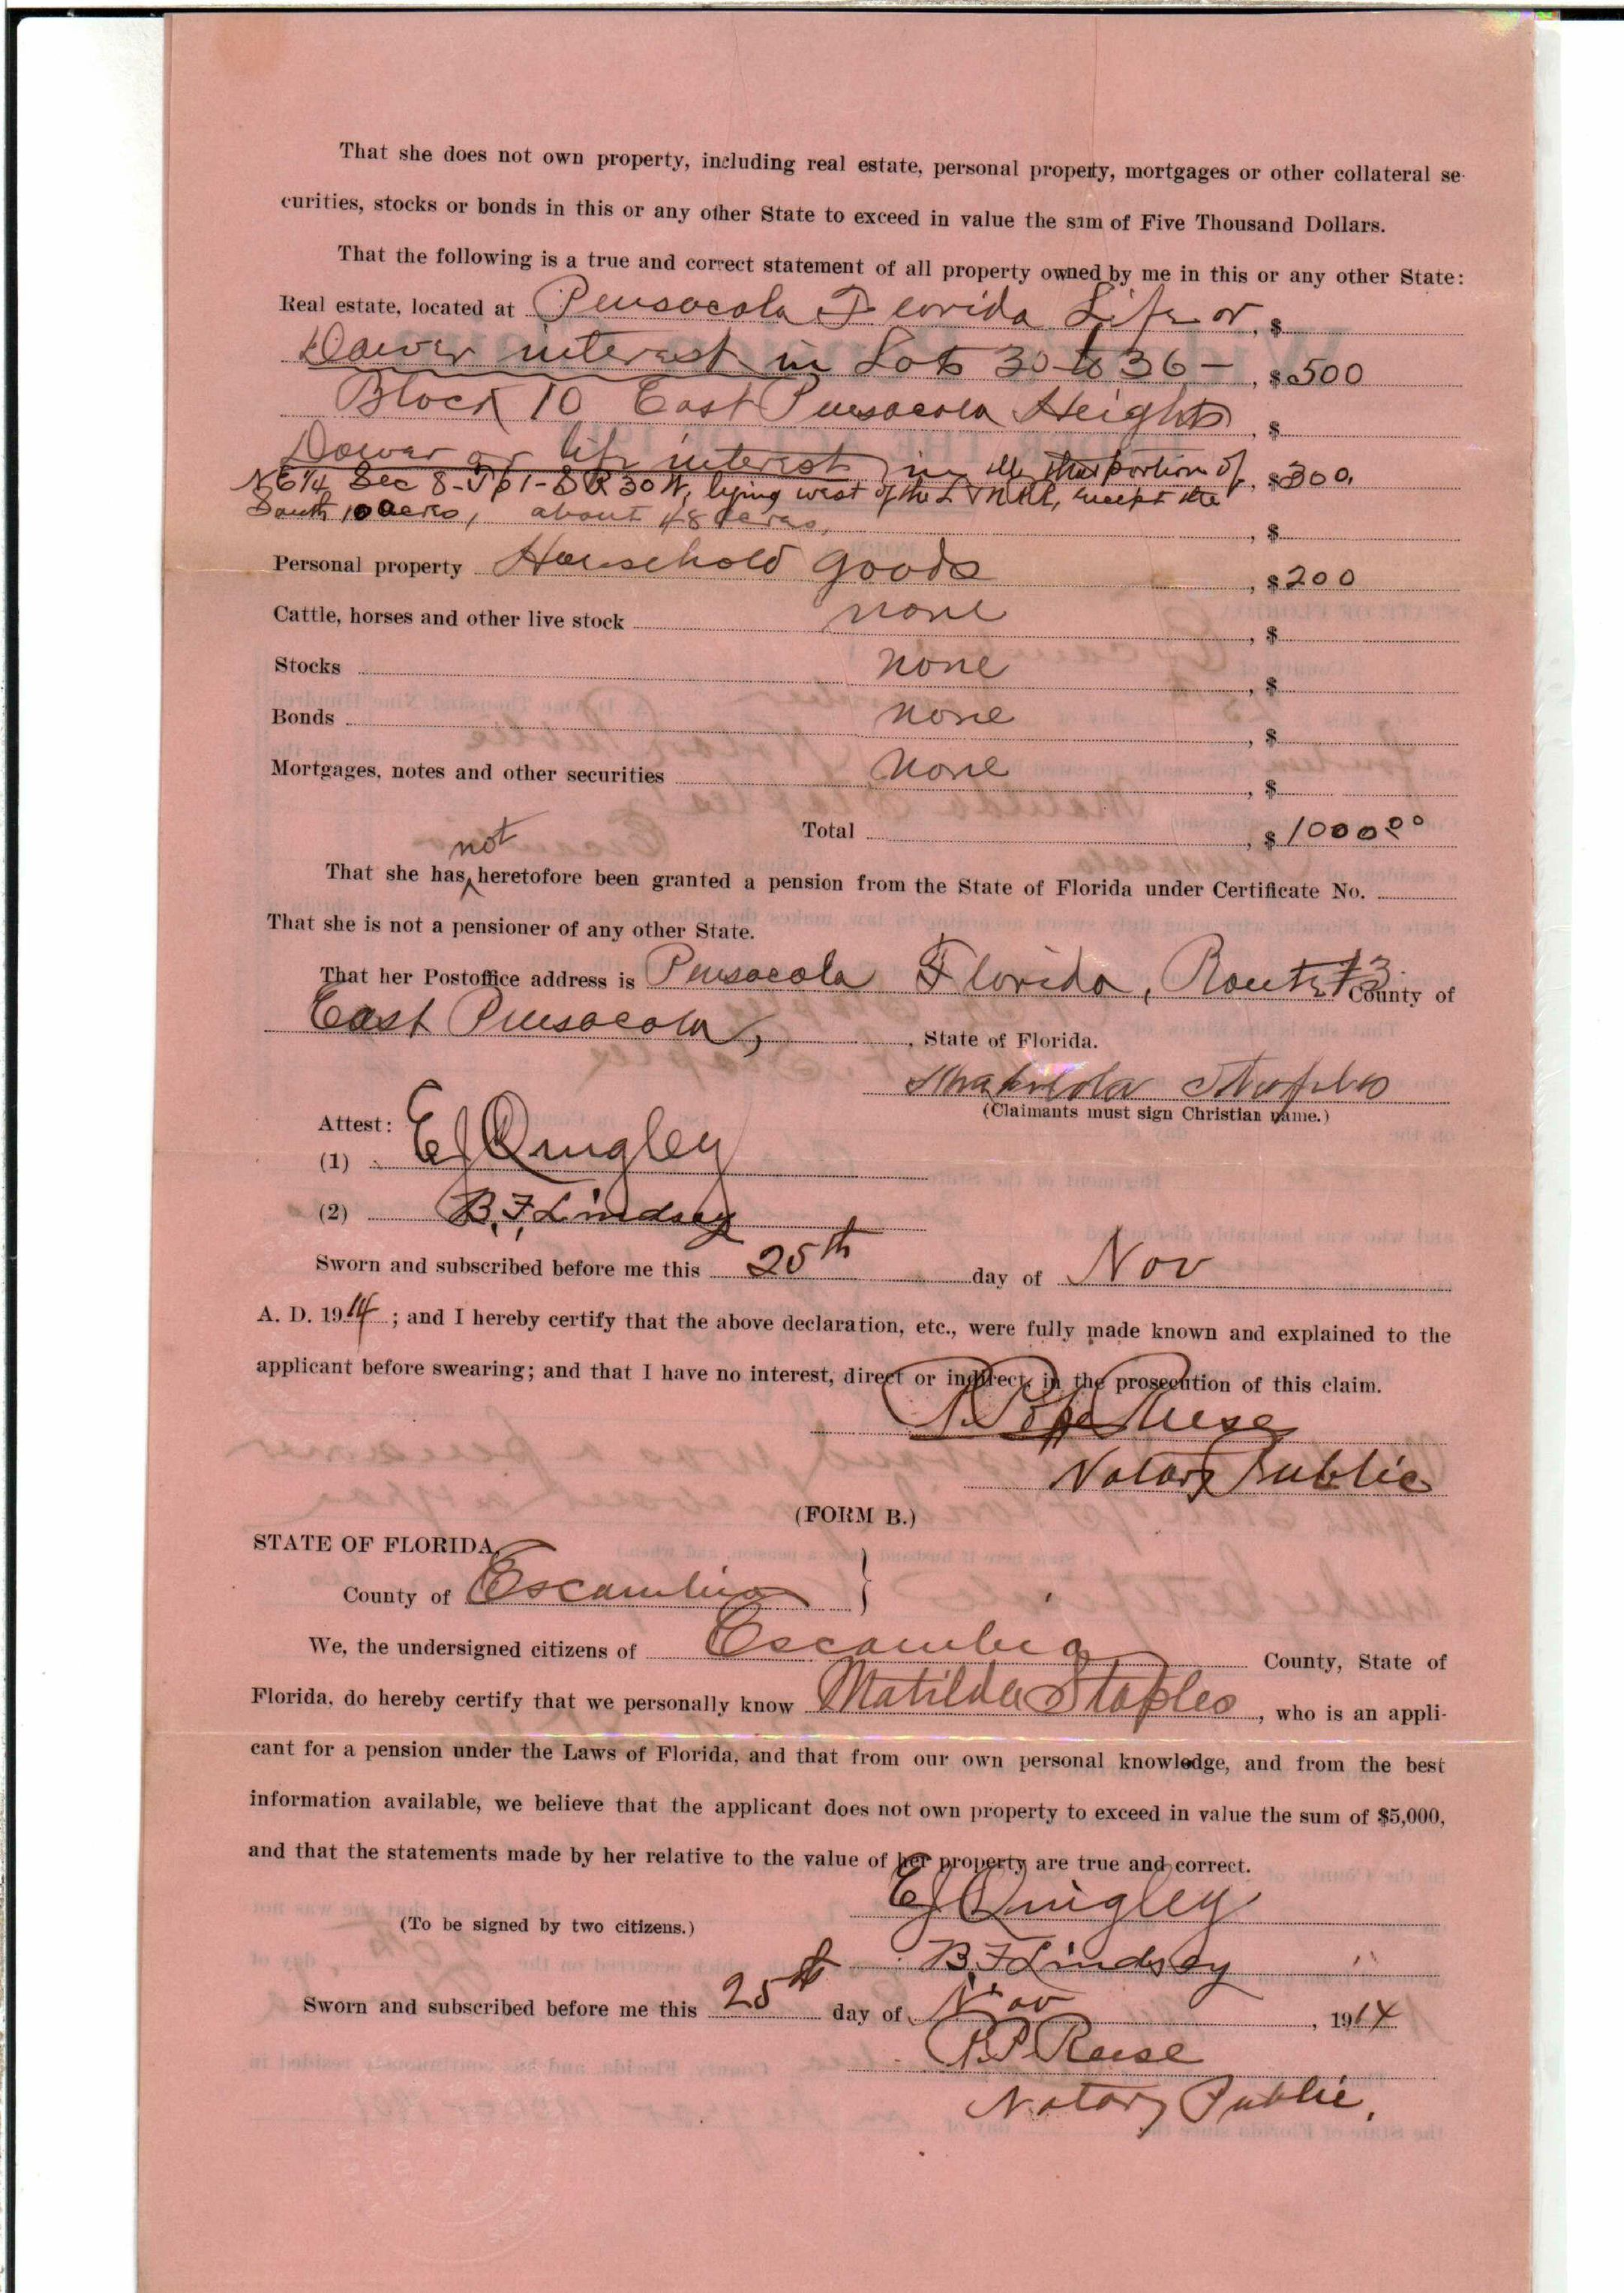 That she does not own property, including real estate, personal property, mortgages or other collateral se-
curities, stocks or bonds in this or any other State to exceed in value the sum of Five Thousand Dollars.
That the following is a true and correct statement of all property owned by me in this or any other State:
Real estate, located at Pensacola Florida Life or, $
Dower interest in Lots 30 to 36 — , $500
Block 10 East Pensacola Heights , $
Dower or life interest in that portion of , $300.
NE 1/4 Sec 8 - Tp 1 - S R 30 W, lying west of the L & N RR, except the
South 10 acres, about 48 acres, , $
Personal property Household goods , $200
Cattle, horses and other live stock none , $
Stocks none , $
Bonds none , $
Mortgages, notes and other securities none , $
Total , $1000 00
not
That she has ‸ heretofore been granted a pension from the State of Florida under Certificate No.
That she is not a pensioner of any other State.
That her Postoffice address is Pensacola Florida, Route 3 County of
East Pensacola, , State of Florida.
Mathilda Staples
(Claimants must sign Christian name.)
Attest:
(1) EJ Quigley
(2) B.F. Lindsey
Sworn and subscribed before me this 25th day of Nov
A. D. 1914 ; and I hereby certify that the above declaration, etc., were fully made known and explained to the
applicant before swearing; and that I have no interest, direct or indirect, in the prosecution of this claim.
Reese
Notary Public
(FORM B.)
STATE OF FLORIDA,
County of Escambia }
We, the undersigned citizens of Escambia County, State of
Florida, do hereby certify that we personally know Matilda Staples , who is an appli-
cant for a pension under the Laws of Florida, and that from our own personal knowledge, and from the best
information available, we believe that the applicant does not own property to exceed in value the sum of $5,000,
and that the statements made by her relative to the value of her property are true and correct.
EJ Quigley
(To be signed by two citizens.)
B.F. Lindsey
Sworn and subscribed before me this 25th day of Nov , 1914
R.P. Reese
Notary Public.